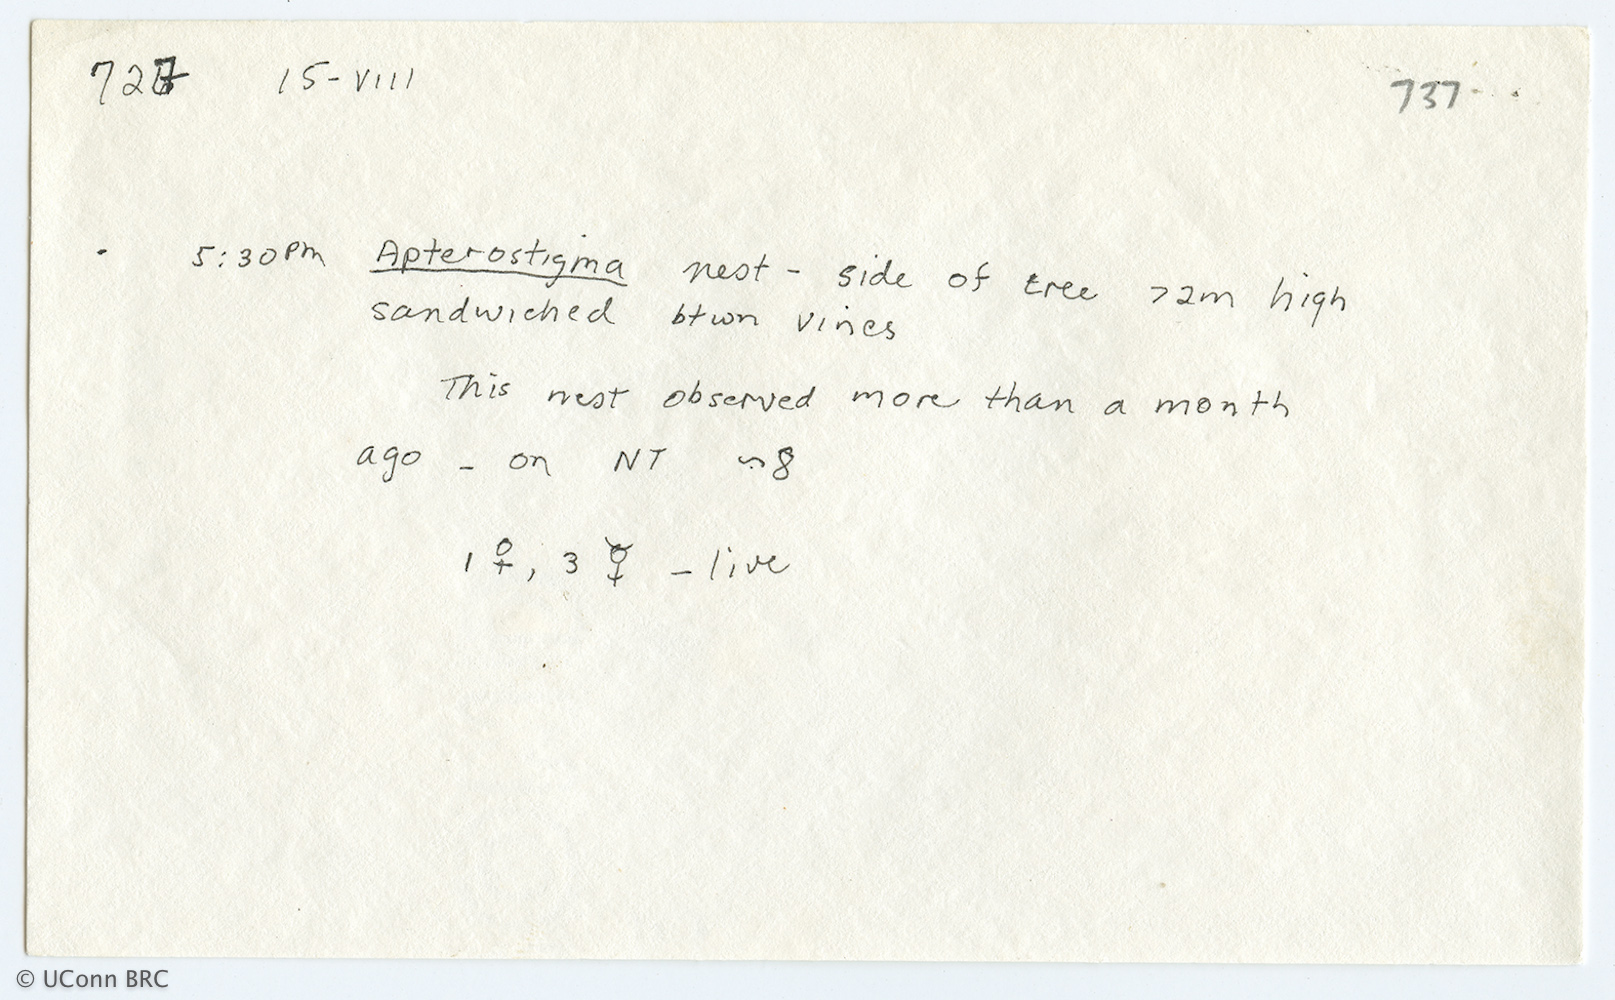 727 15-VIII 737
5:30pm Apterostigma nest - side of tree >2m high
sandwiched btwn vines
This nest observed more than a month
ago - on NT ~8
1 ♀, 3 ☿ - live
© UConn BRC